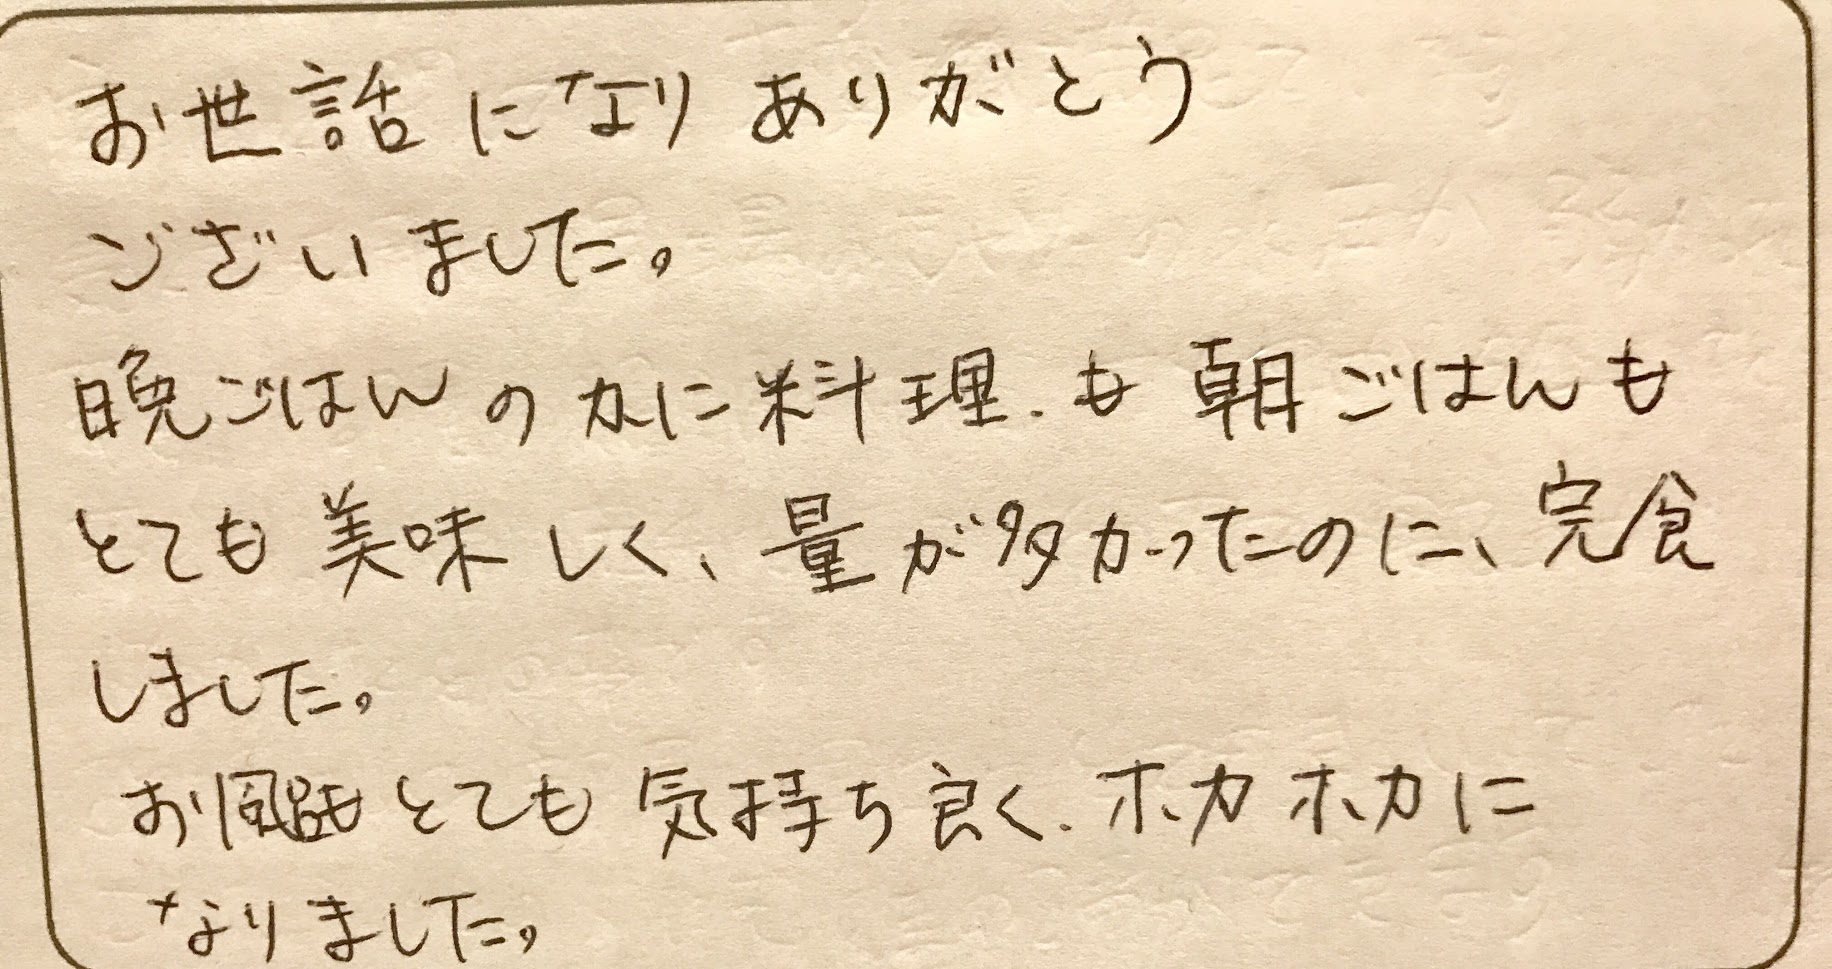 お世話になりありがとう
ございました。
晩ごはんのカニ料理も朝ごはんも
とても美味しく、量が多かったのに、完食
しました。
お風呂もとても気持ち良く、ホカホカに
なりました。